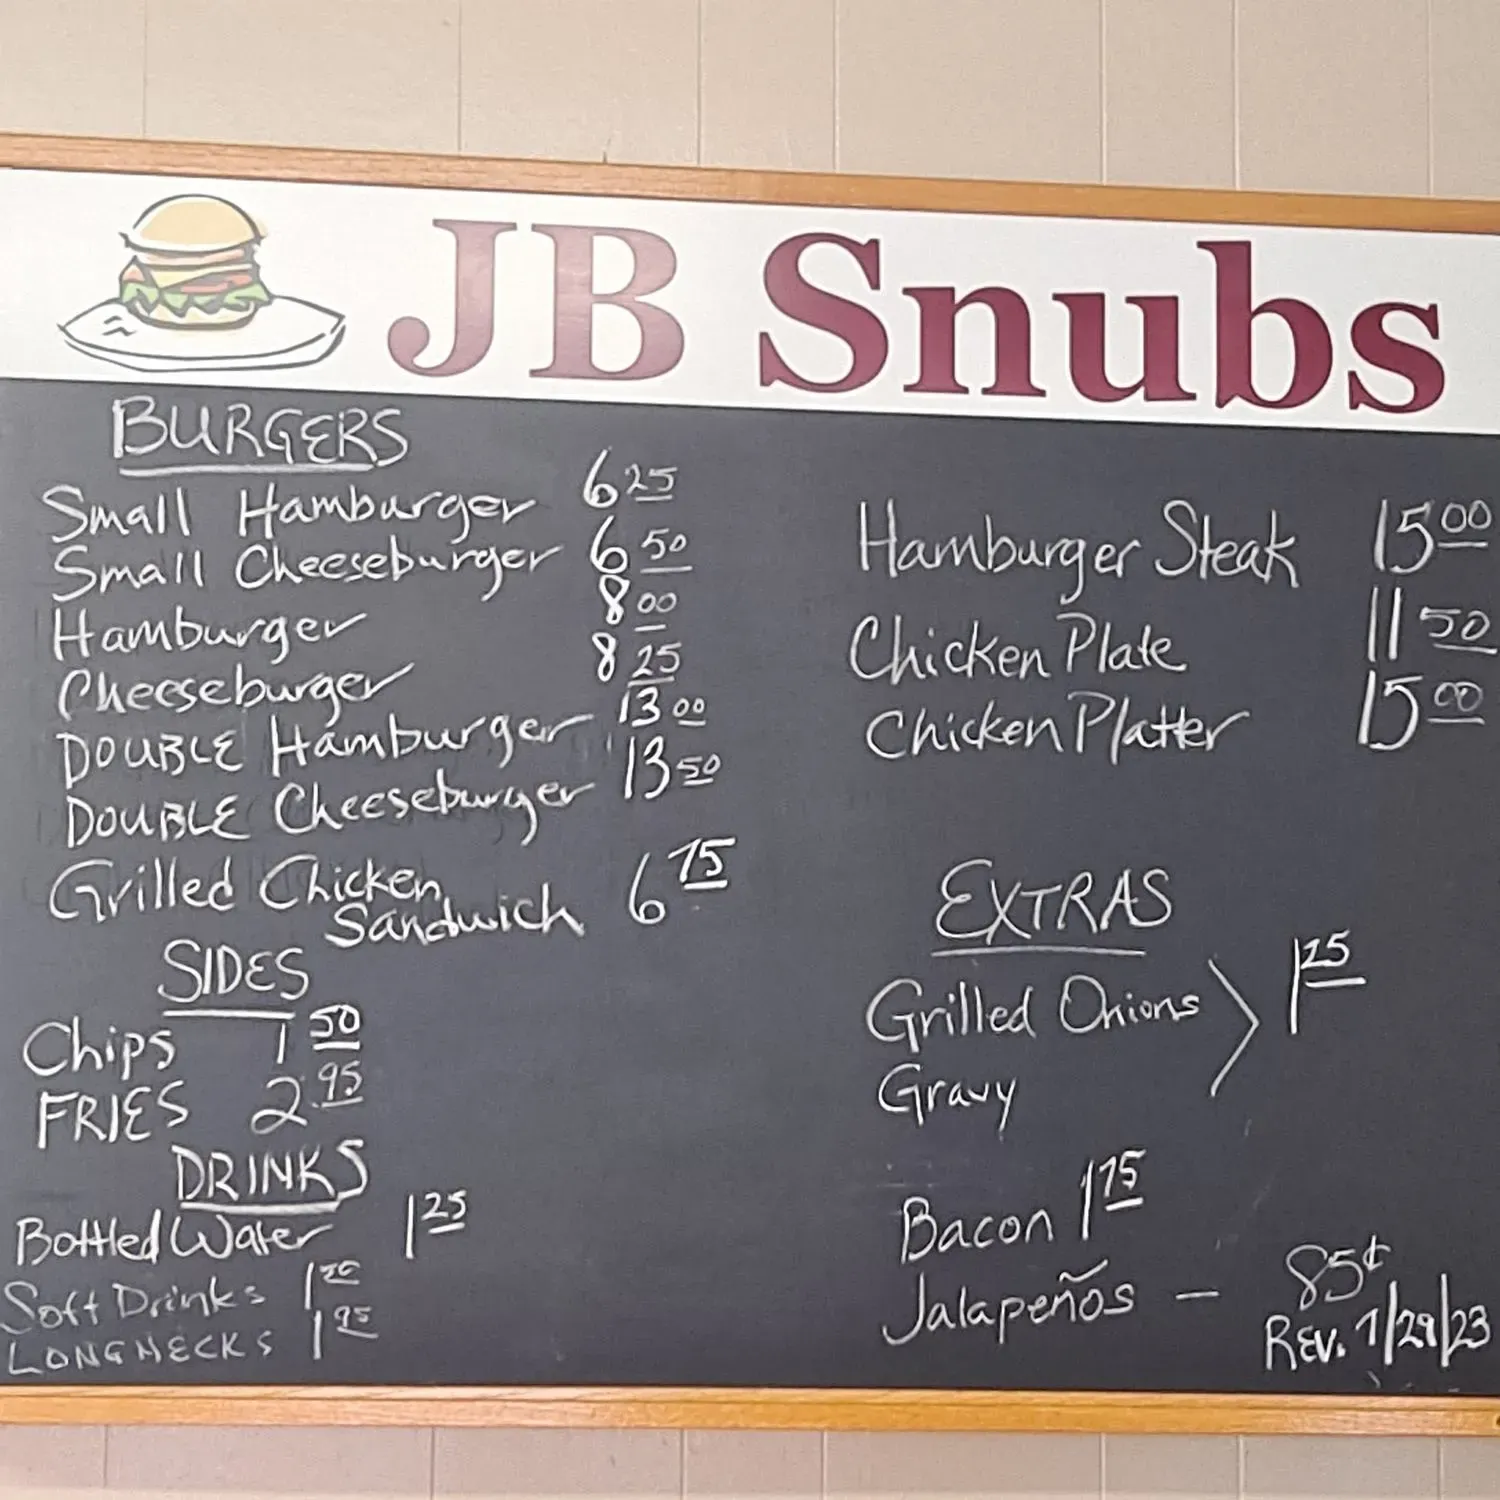 JB Snubs
BURGERS
Small Hamburger 6 25
Small Cheeseburger 6 50
Hamburger 8 00
Cheeseburger 8 25
DOUBLE Hamburger 13 00
DOUBLE Cheeseburger 13 50
Grilled Chicken
Sandwich 6 75
SIDES
Chips 1 50
FRIES 2.95
DRINKS
Bottled Water 1 25
Soft Drinks 1
LONGNECKS 1 95
Hamburger Steak 15 00
Chicken Plate 11 50
Chicken Platter 15 00
EXTRAS
Grilled Onions > 1 25
Gravy
Bacon 1 75
Jalapeños - 85¢
REV. 1/29/23